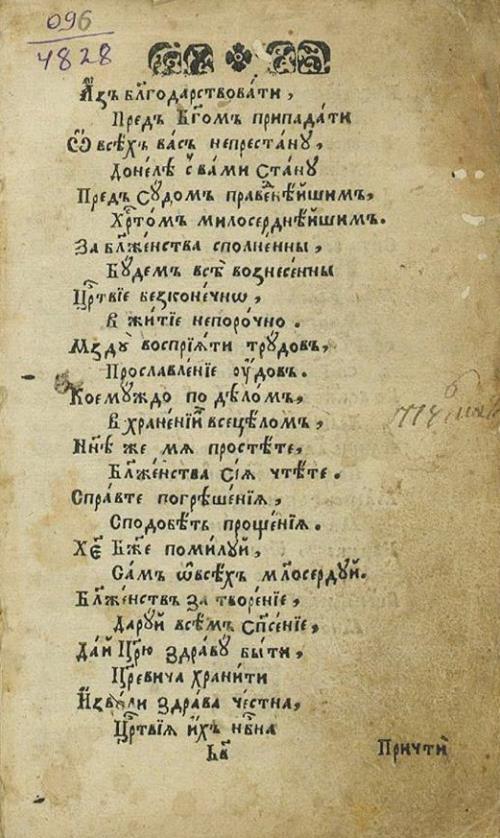 096
4828
А҆́зъ бл҃года́рствова́ти,
Предъ Бг҃омъ припада́ти
Ѽ всѣ́хъ ва́съ непреста́нꙋ,
До́нелѣ с̾ ва́ми Ста́нꙋ
Предъ Сꙋдо́мъ праведнѣ́йшимъ,
Хрⷭ҇то́мъ милосерднѣ́йшимъ.
За бл҃же́нства спо́лненны,
Бꙋ́демъ всѣ̀ вознесе́нны
Црⷭ҇твїе безконе́чнѡ,
в жи́тїе непоро́чно.
Мздꙋ̀ воспрїѧ́ти трꙋдо́въ,
Прославле́нїе оу҆́довъ.
Коемꙋ́ждо по дѣло́мъ,
в хране́нїй всецѣ́ломъ,
Нн҃ѣ же мѧ просте́те,
Бл҃же́нства Сїѧ̀ чте́те.
Спра́вте погрѣше́нїѧ,
Сподобѣ́ть проще́нїѧ.
Хрⷭ҇тѐ Бж҃е поми́лꙋй,
Са́мъ ѿ всѣ́хъ мл҃осе́рдꙋй.
Бл҃же́нствъ за творе́нїе,
Дарꙋ́й всѣ́мъ Сп҃се́нїе,
Да́й Цр҃ю здра́вꙋ бы́ти,
Цр҃е́вича храни́ти
И҆зво́ли здра́ва че́стна,
Црⷭ҇твїѧ и҆́хъ нбⷭ҇на
Причти̾